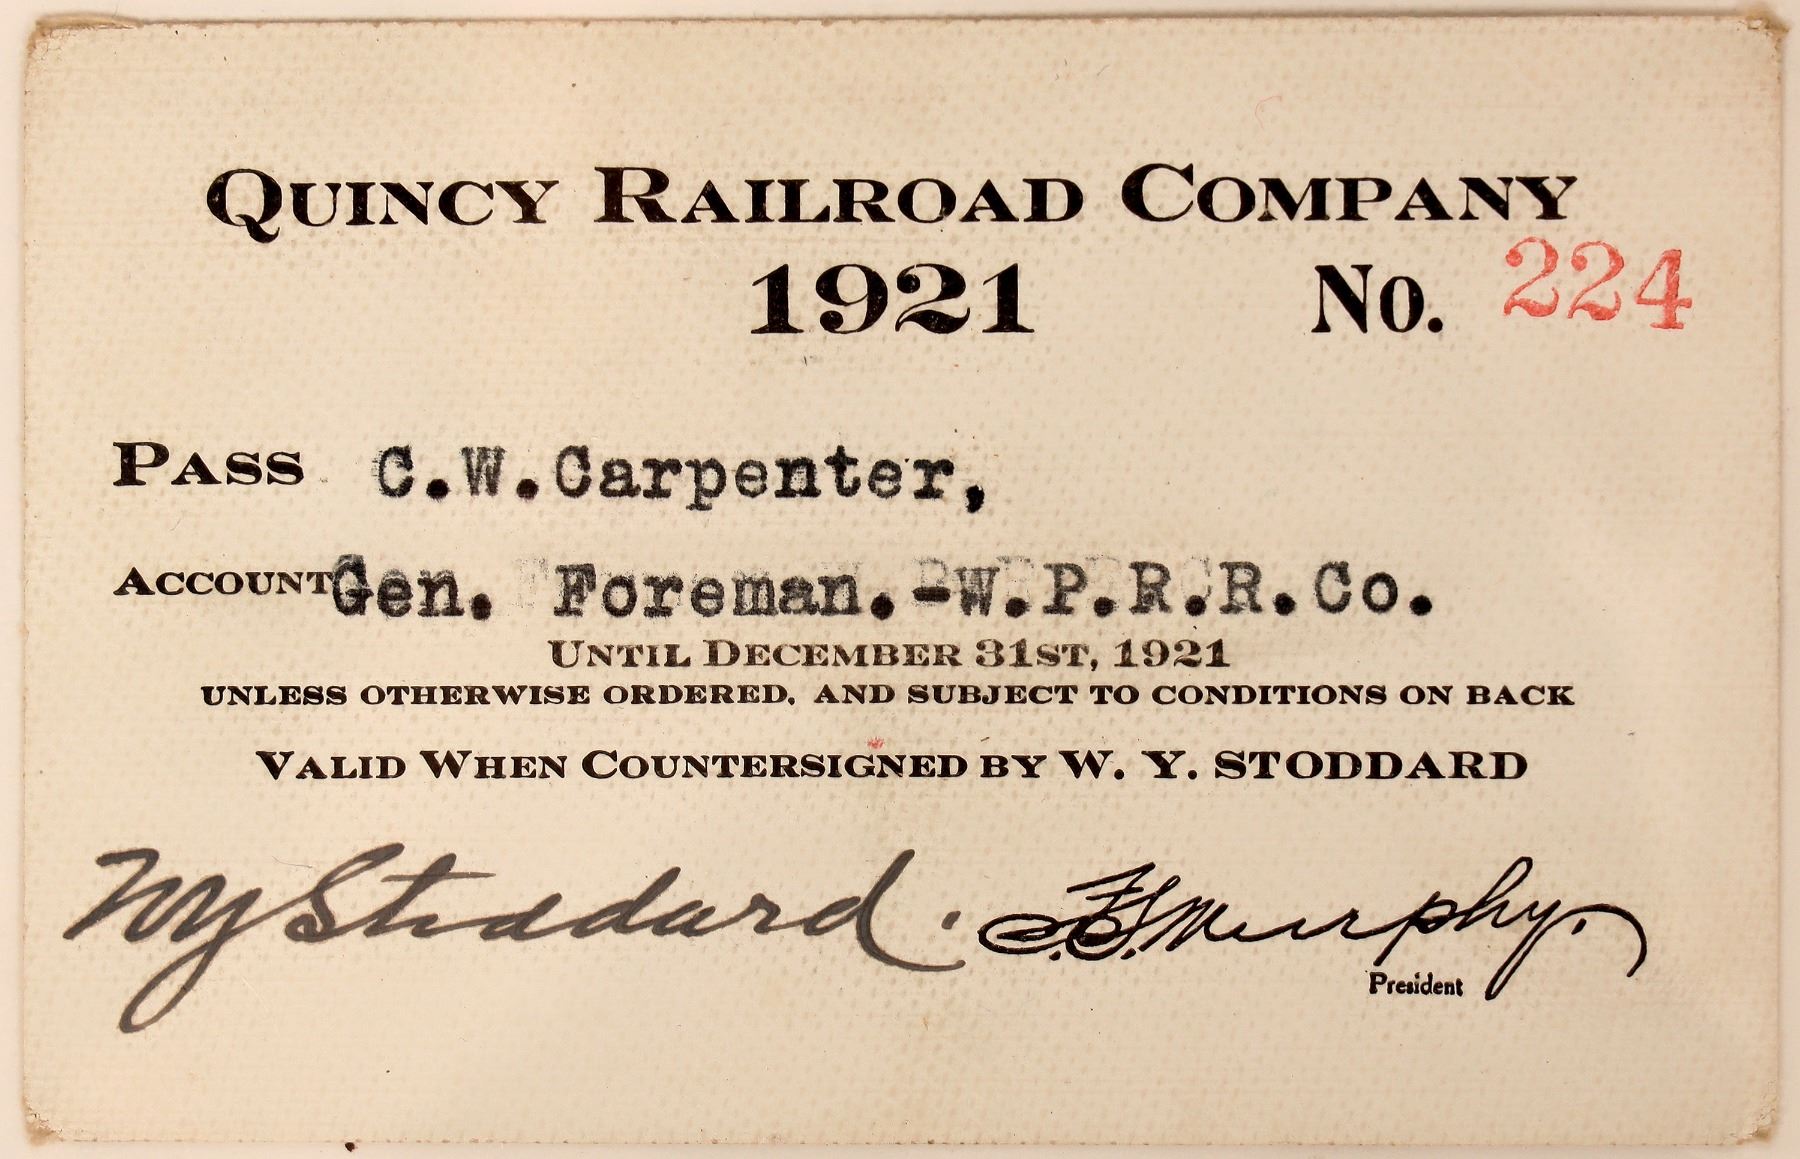 QUINCY RAILROAD COMPANY
1921 No. 224
PASS C.W.Carpenter,
ACCOUNT Gen. Foreman.-W.P.R.R.Co.
UNTIL DECEMBER 31ST, 1921
UNLESS OTHERWISE ORDERED, AND SUBJECT TO CONDITIONS ON BACK
VALID WHEN COUNTERSIGNED BY W. Y. STODDARD
WYStoddard. F.S.Murphy.
President